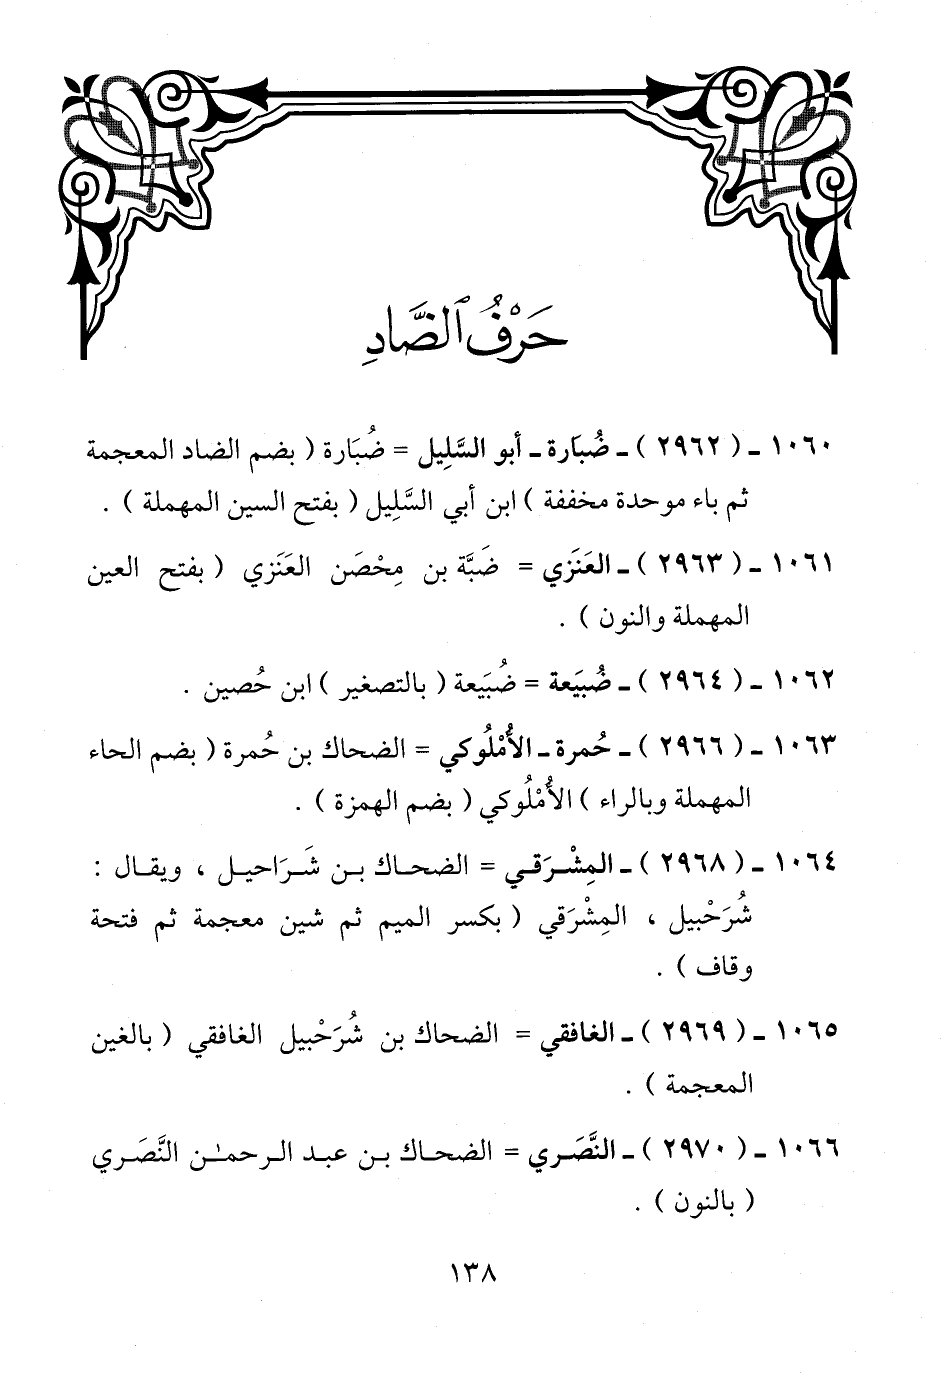 حَرْفُ ٱلضَّادِ
١٠٦٠ ـ ( ٢٩٦٢ ) ـ ضُبَارة ـ أبو السَّلِيل = ضُبَارة ( بضم الضاد المعجمة
ثم باء موحدة مخففة ) ابن أبي السَّلِيل ( بفتح السين المهملة ) .
١٠٦١ ـ ( ٢٩٦٣ ) ـ العَنَزي = ضَبَّة بن مِحْصَن العَنَزي ( بفتح العين
المهملة والنون ) .
١٠٦٢ ـ ( ٢٩٦٤ ) ـ ضُبَيعة = ضُبَيعة ( بالتصغير ) ابن حُصين .
١٠٦٣ ـ ( ٢٩٦٦ ) ـ حُمرة ـ الأُمْلُوكي = الضحاك بن حُمرة ( بضم الحاء
المهملة وبالراء ) الأُمْلُوكي ( بضم الهمزة ) .
١٠٦٤ ـ ( ٢٩٦٨ ) ـ المِشْرَقي = الضحاك بن شَرَاحيل ، ويقال :
شُرَحْبيل ، المِشْرَقي ( بكسر الميم ثم شين معجمة ثم فتحة
وقاف ) .
١٠٦٥ ـ ( ٢٩٦٩ ) ـ الغافقي = الضحاك بن شُرَحْبيل الغافقي ( بالغين
المعجمة ) .
١٠٦٦ ـ ( ٢٩٧٠ ) ـ النَّصَري = الضحاك بن عبد الرحمٰن النَّصَري
( بالنون ) .
١٣٨